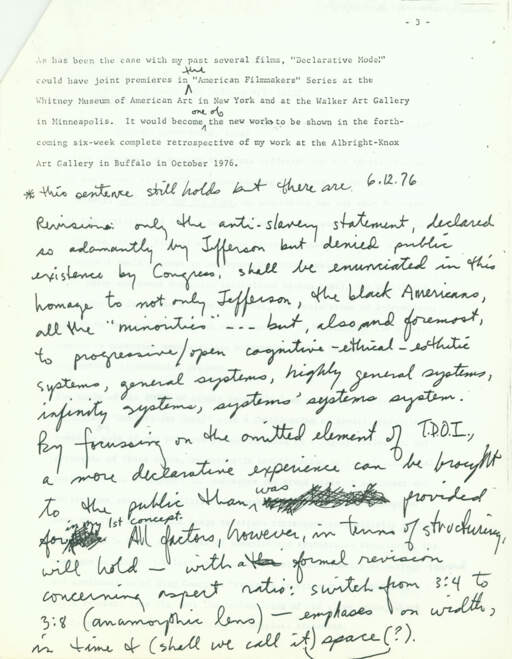 - 3 -
As has been the case with my past several films, "Declarative Mode"
could have joint premieres in the "American Filmmakers" Series at the
Whitney Museum of American Art in New York and at the Walker Art Gallery
in Minneapolis. It would become one of the new works to be shown in the forth-
coming six-week complete retrospective of my work at the Albright-Knox
Art Gallery in Buffalo in October 1976.
* this sentence still holds but there are 6.12.76
Revisions: only the anti-slavery statement, declared
so adamantly by Jefferson but denied public
existence by Congress, shall be enunciated in this
homage to not only Jefferson, the black Americans,
all the "minorities" --- but, also, and foremost,
to progressive/open cognitive-ethical-esthetic
systems, general systems, highly general systems,
infinity systems, systems' systems system.
By focussing on the omitted element of T.D.O.I.,
a more declarative experience can be brought
to the public than was provided
in my 1st concept. All factors, however, in terms of structuring,
will hold — with a formal revision
concerning aspect ratio: switch from 3:4 to
3:8 (anamorphic lens) — emphases on width,
in time & (shall we call it) space (?).